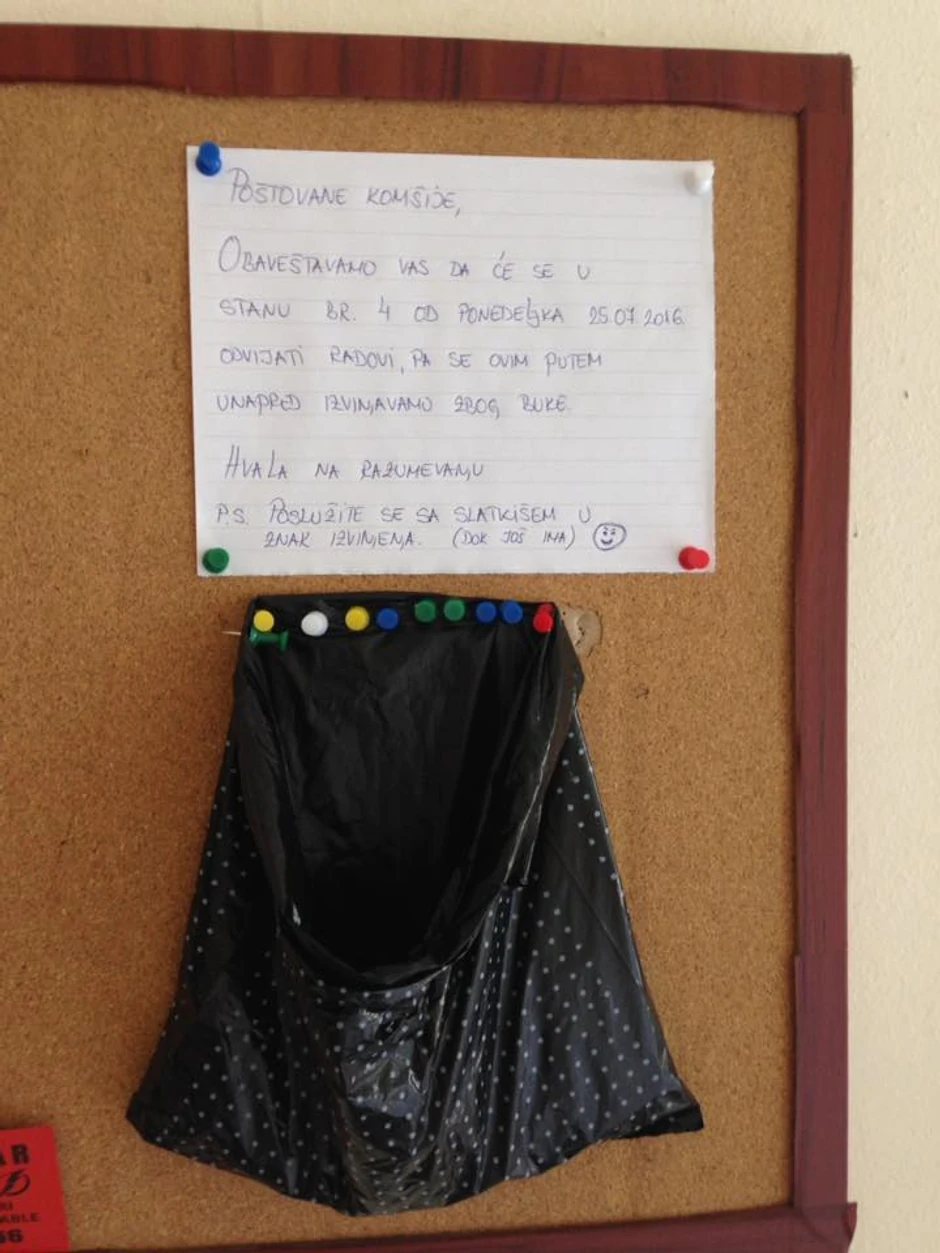 POŠTOVANE KOMŠIJE,
OBAVEŠTAVAMO VAS DA ĆE SE U
STANU BR. 4 OD PONEDELJKA 25.07.2016.
ODVIJATI RADOVI, PA SE OVIM PUTEM
UNAPRED IZVINJAVAMO ZBOG BUKE.
HVALA NA RAZUMEVANJU
P.S. POSLUŽITE SE SA SLATKIŠEM U
ZNAK IZVINJENJA. (DOK JOŠ IMA)
AR
D
RI
ABLE
56